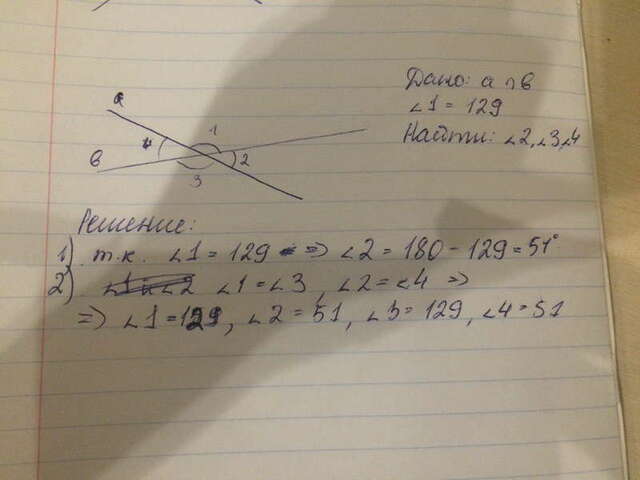 Дано: a ∩ b
∠1 = 129
Найти: ∠2, ∠3, ∠4
a
1
4
b
2
3
Решение:
1) т.к. ∠1 = 129 => ∠2 = 180 - 129 = 51°
2) ∠1 = ∠3, ∠2 = ∠4 =>
=> ∠1 = 129, ∠2 = 51, ∠3 = 129, ∠4 = 51